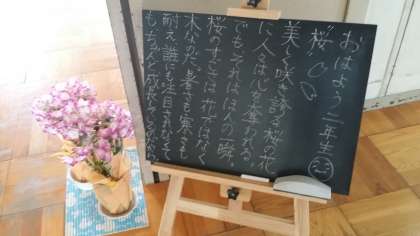 おはよう二年生
桜
美しく咲き誇る桜の花
に人々は心を奪われる。
でも、それはほんの一瞬。
桜のすごさは花ではなく
木なのだ。暑さも寒さも
耐え、誰にも注目されなくて